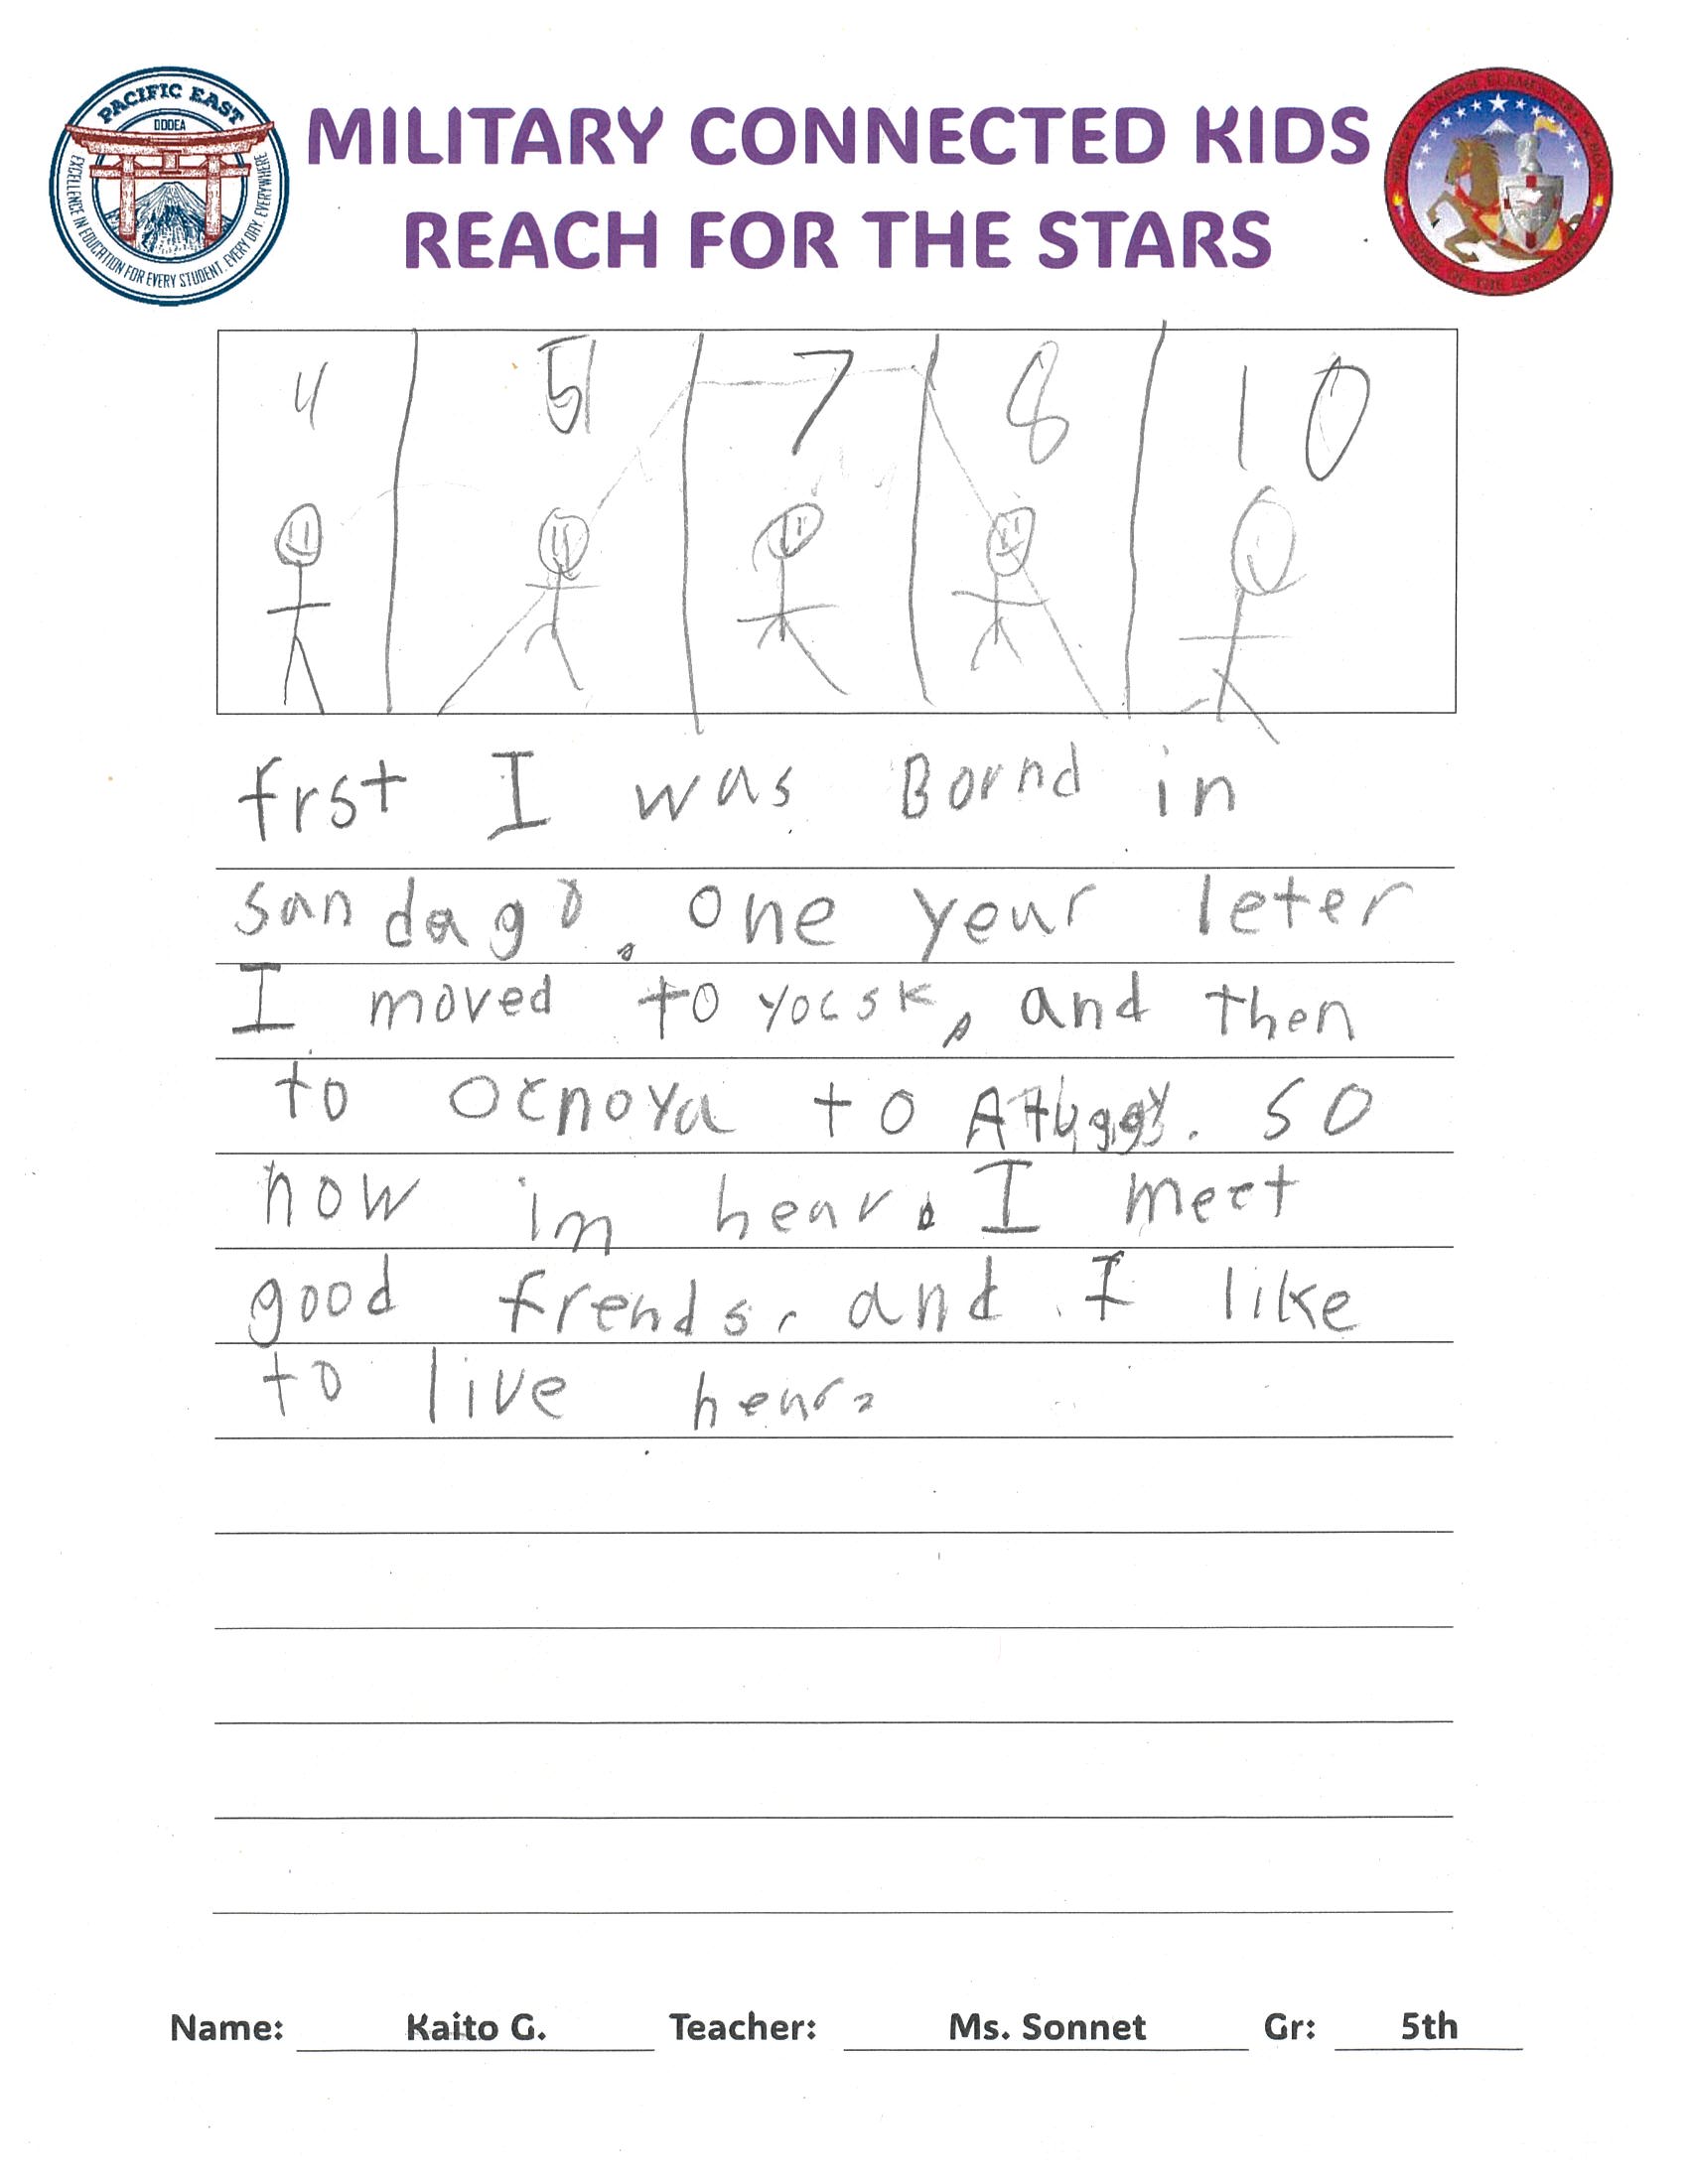 PACIFIC EAST
DODEA
EXCELLENCE IN EDUCATION FOR EVERY STUDENT, EVERY DAY, EVERYWHERE
MILITARY CONNECTED KIDS
REACH FOR THE STARS
4 5 7 8 10
frst I was Bornd in
san dago. one year leter
I moved to yocsk, and then
to ocnoya to Atuggy. so
now im hear. I meet
good frends, and I like
to live hear.
Name: Kaito G. Teacher: Ms. Sonnet Gr: 5th